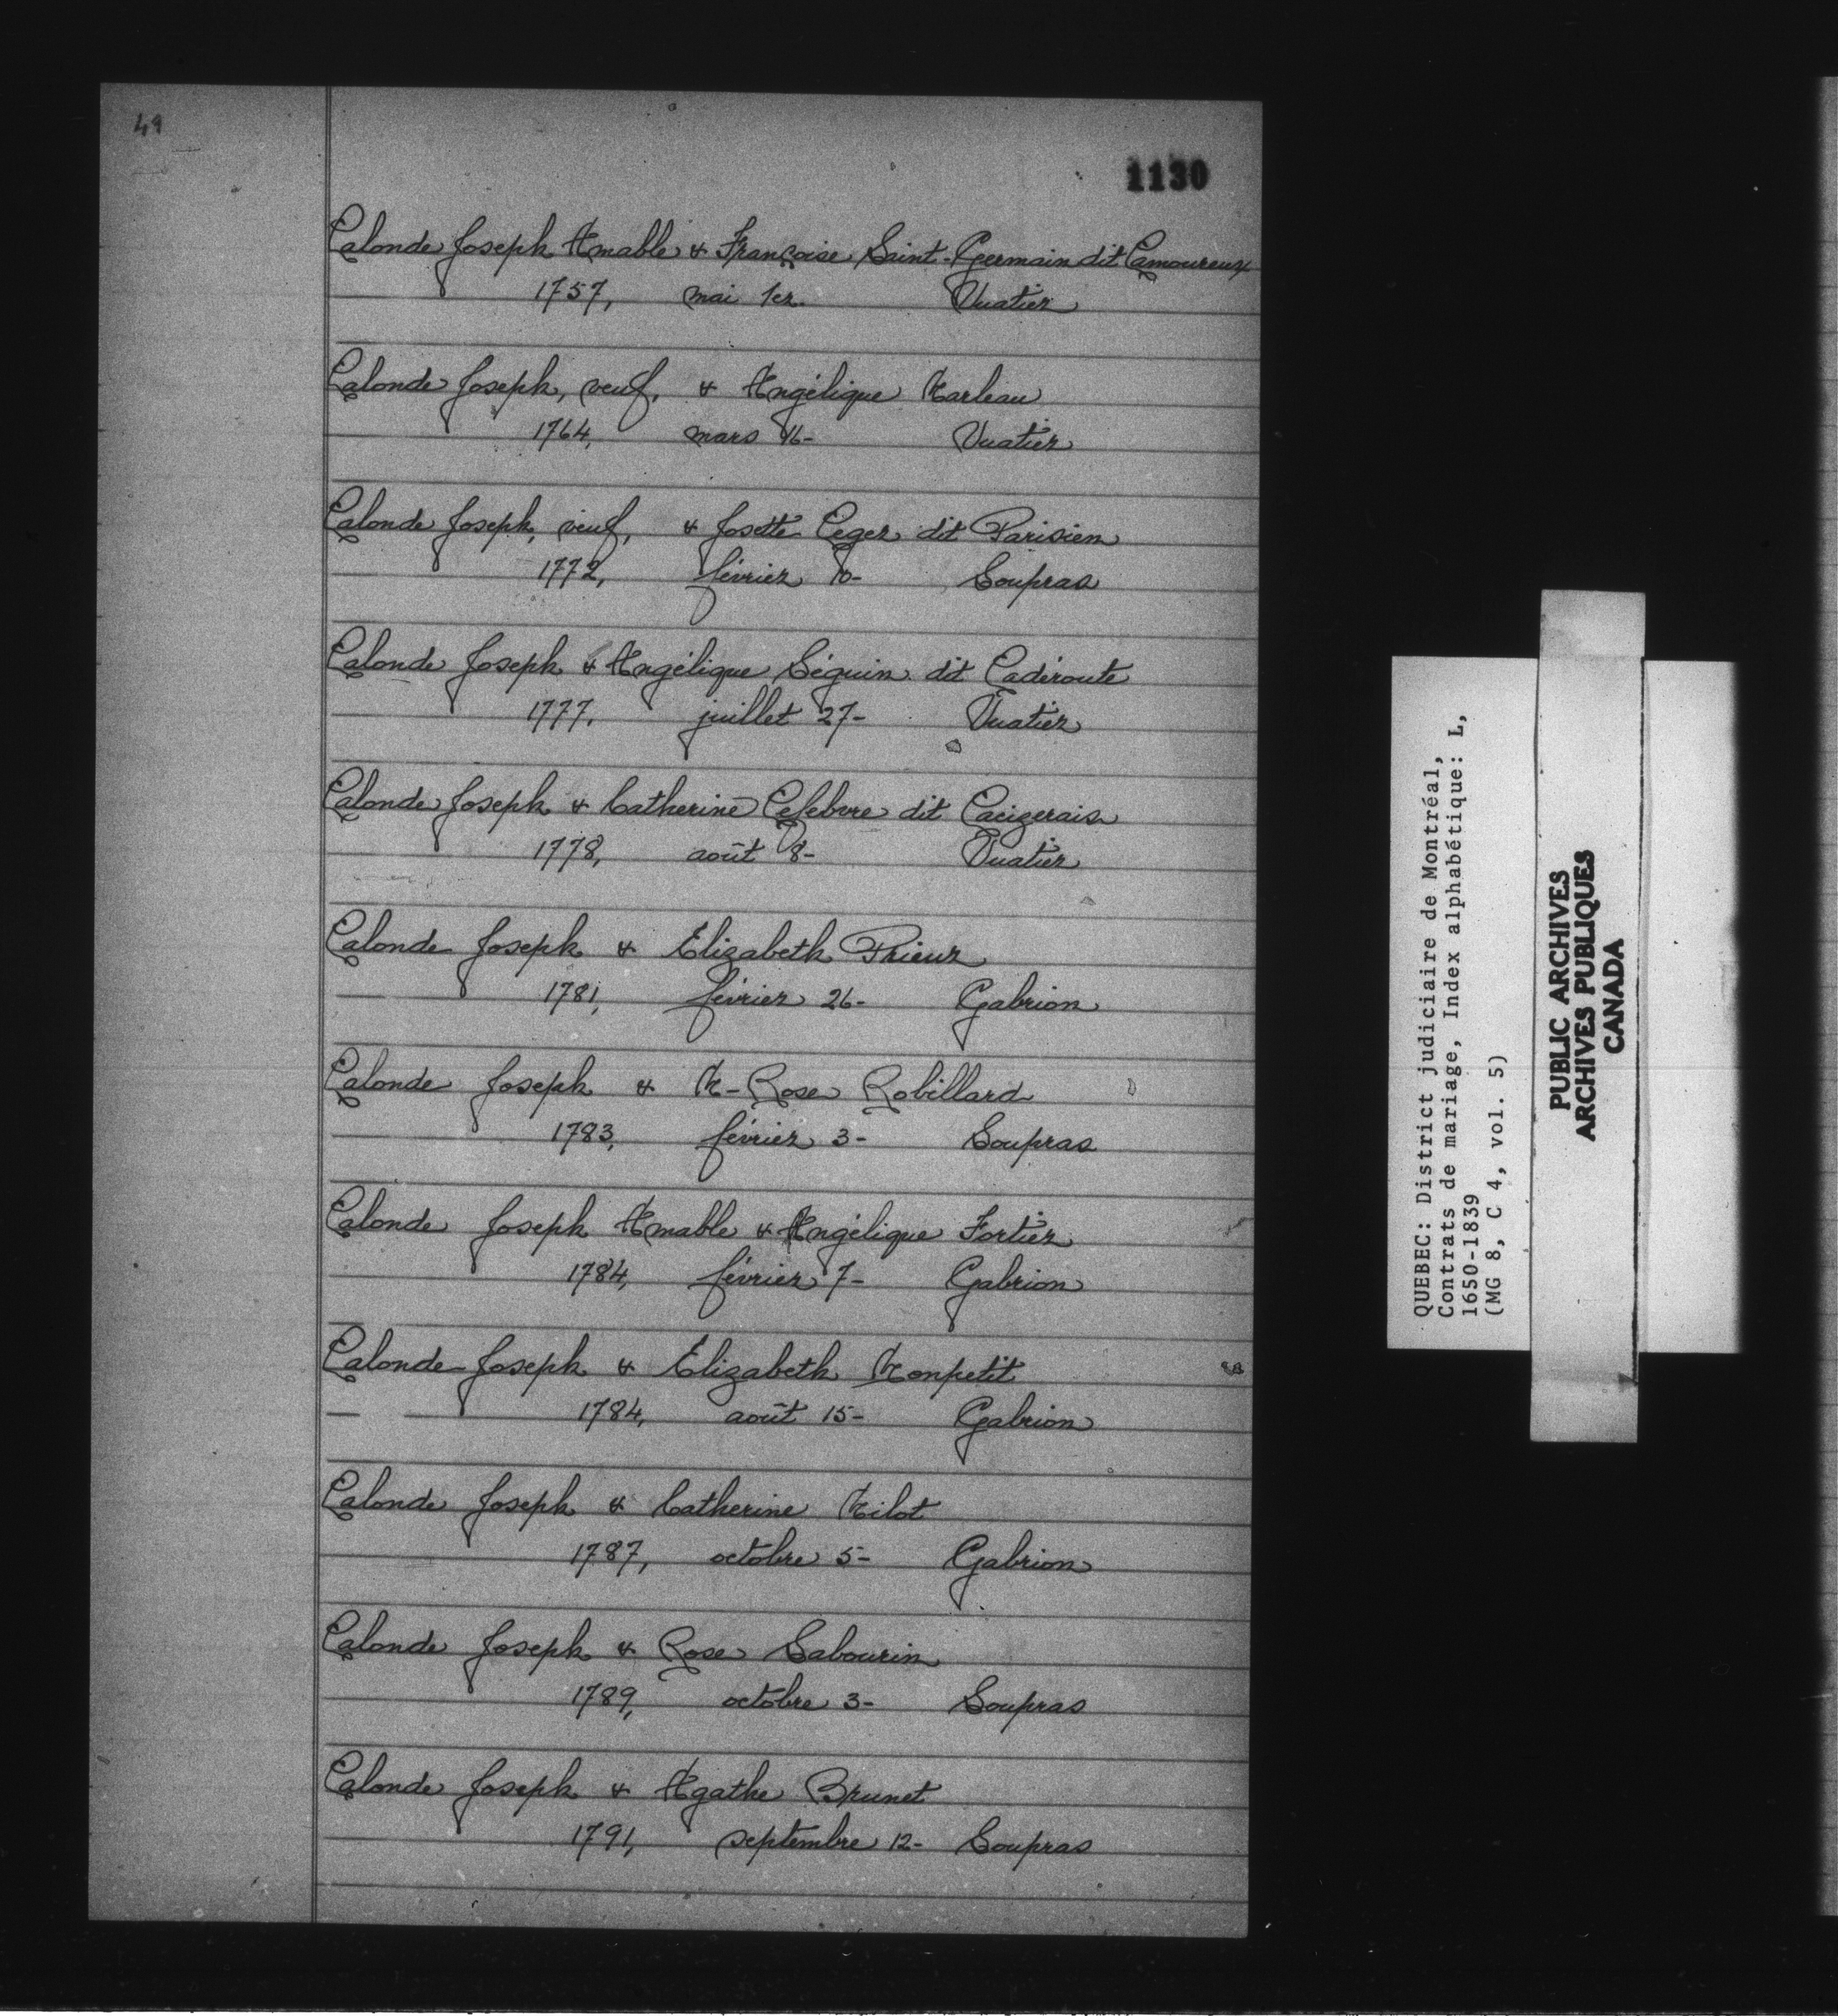 49
1130
Lalonde Joseph Amable & Françoise Saint-Germain dit Lamoureux
1757, mai 1er Vuatier
Lalonde Joseph, veuf, & Angélique Marleau
1764, mars 16- Vuatier
Lalonde Joseph, veuf, & Josette Leger dit Parisien
1772, février 10- Soupras
Lalonde Joseph & Angélique Séguin dit Ladéroute
1777, juillet 27- Vuatier
Lalonde Joseph & Catherine Lefebvre dit Lacizerais
1778, août 8- Vuatier
Lalonde Joseph & Elizabeth Prieur
1781, février 26- Gabrion
Lalonde Joseph & M-Rose Robillard
1783, février 3- Soupras
Lalonde Joseph Amable & Angélique Fortier
1784, février 7- Gabrion
Lalonde Joseph & Elizabeth Monpetit
1784, août 15- Gabrion
Lalonde Joseph & Catherine Milot
1787, octobre 5- Gabrion
Lalonde Joseph & Rose Sabourin
1789, octobre 3- Soupras
Lalonde Joseph & Agathe Brunet
1791, septembre 12- Soupras
QUEBEC: District judiciaire de Montréal,
Contrats de mariage, Index alphabétique: L,
1650-1839
(MG 8, C 4, vol. 5)
PUBLIC ARCHIVES
ARCHIVES PUBLIQUES
CANADA